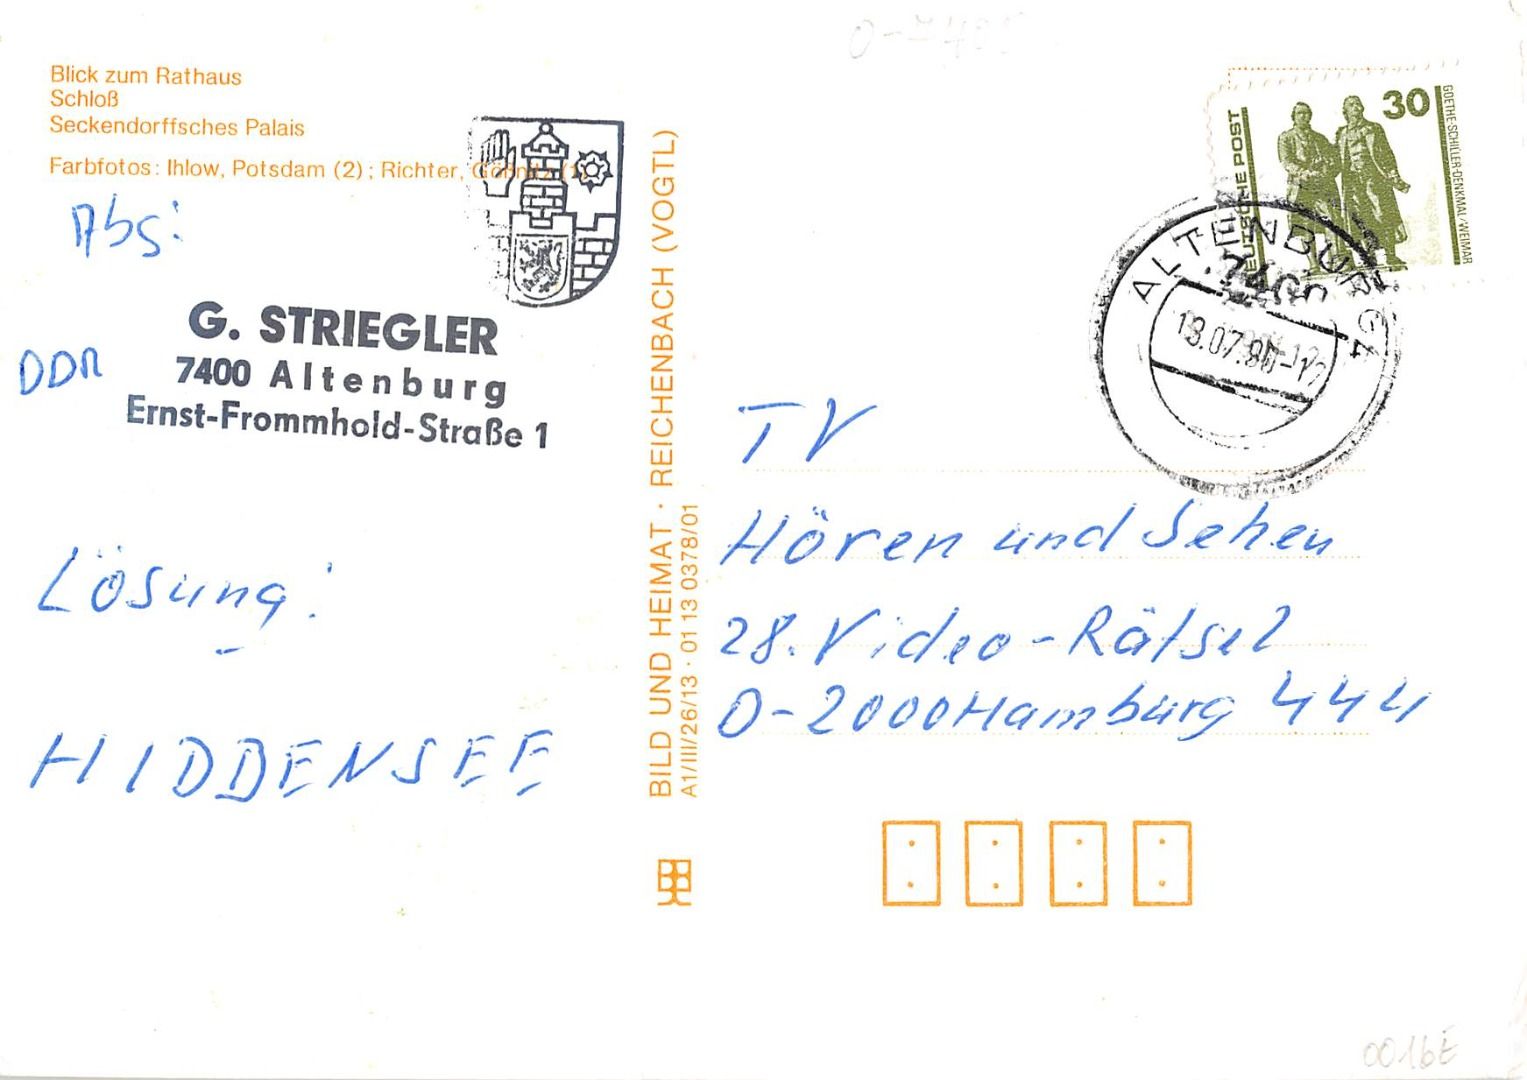 Blick zum Rathaus
Schloß
Seckendorffsches Palais
Farbfotos: Ihlow, Potsdam (2); Richter, Gößnitz (1)
Abs:
G. STRIEGLER
DDR
7400 Altenburg
Ernst-Frommhold-Straße 1
Lösung:
HIDDENSEE
BILD UND HEIMAT · REICHENBACH (VOGTL)
A1/III/26/13 · 01 13 0378/01
30
DEUTSCHE POST
GOETHE-SCHILLER-DENKMAL/WEIMAR
ALTENBURG 1
7400
TV
Hören und Sehen
28. Video-Rätsel
D-2000 Hamburg 444
0016E